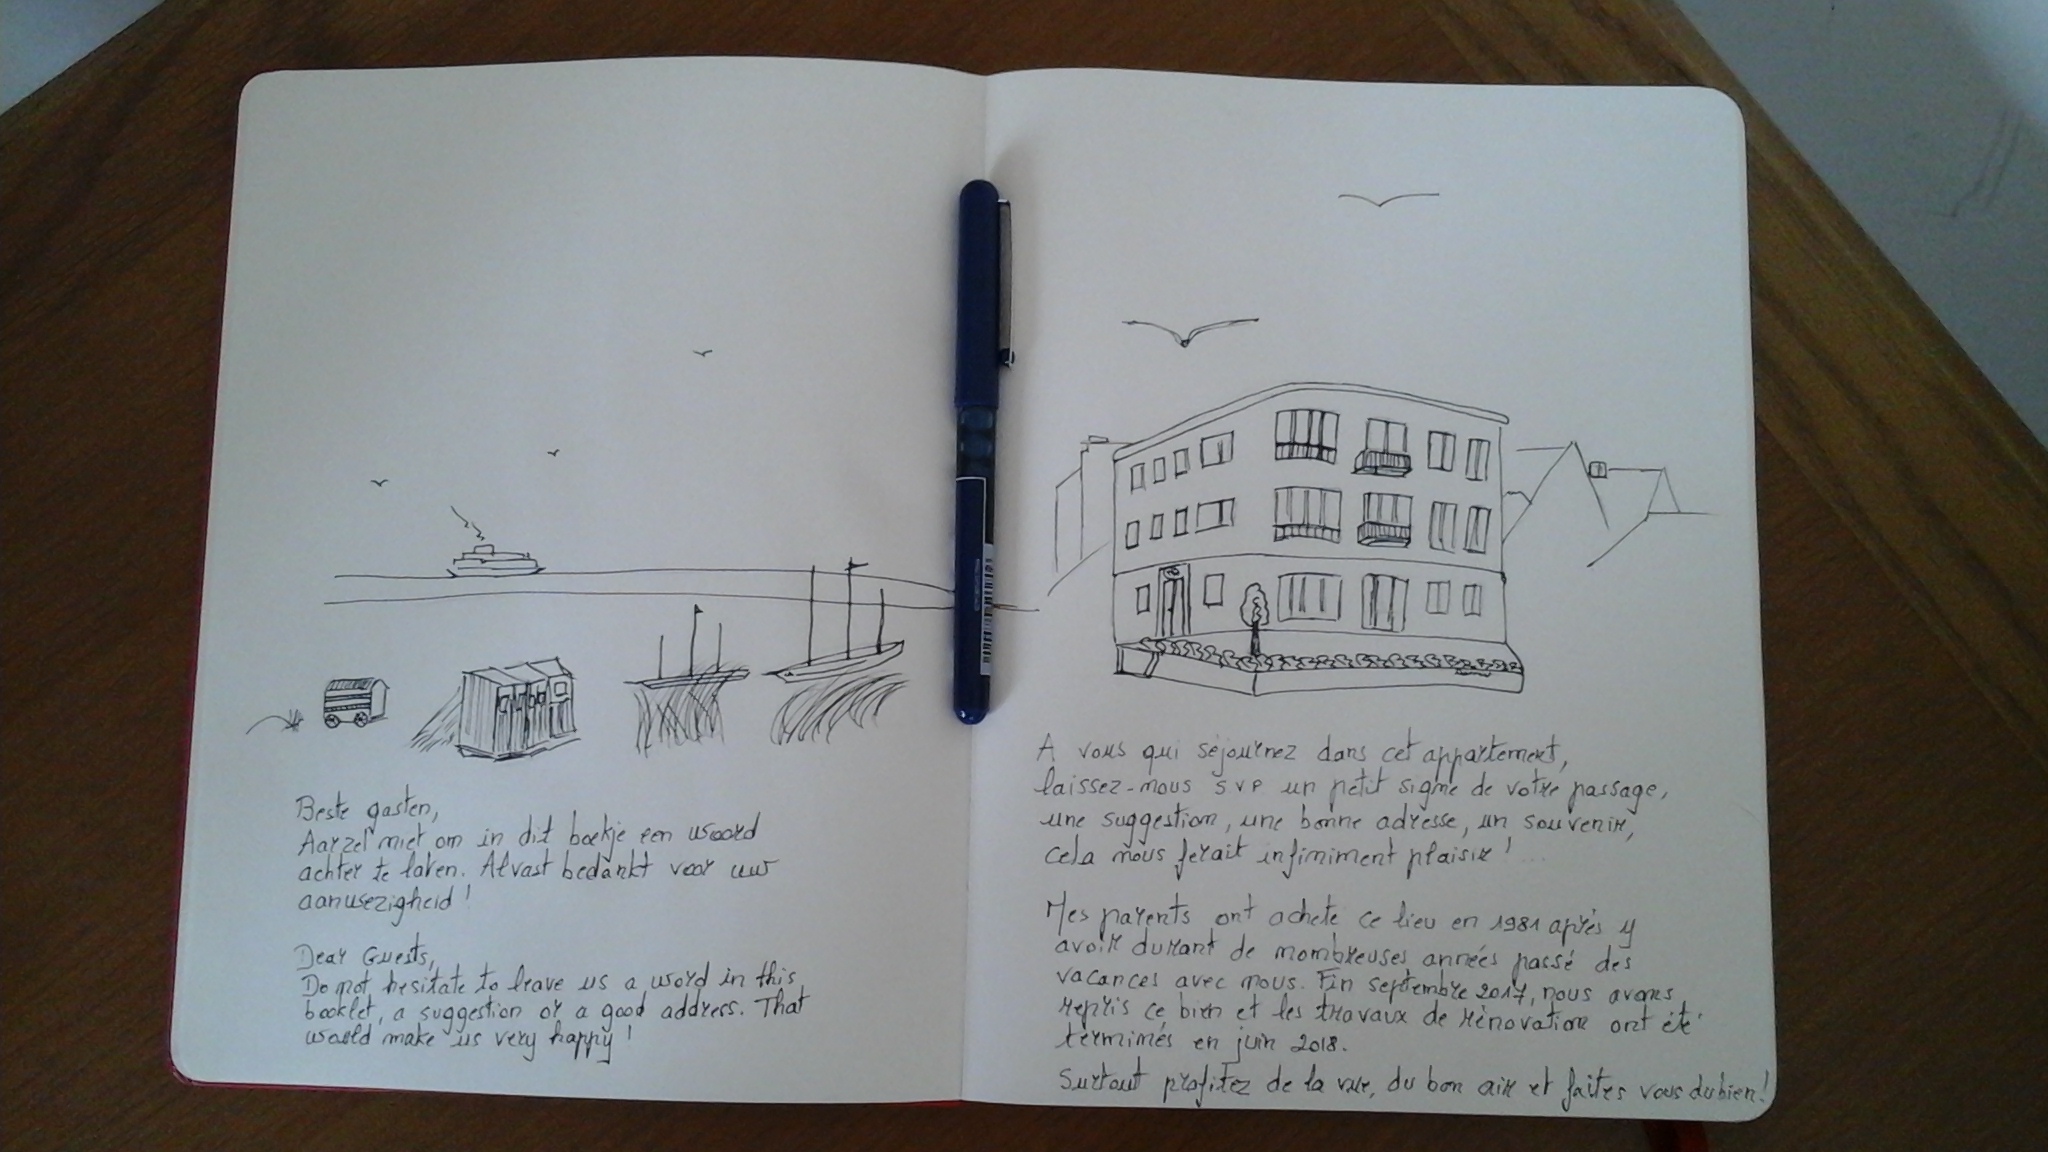 Beste gasten,
Aarzel niet om in dit boekje een woord
achter te laten. Alvast bedankt voor uw
aanwezigheid !
Dear Guests,
Do not hesitate to leave us a word in this
booklet, a suggestion or a good address. That
would make us very happy !
A vous qui séjournez dans cet appartement,
laissez-nous SVP un petit signe de votre passage,
une suggestion, une bonne adresse, un souvenir,
cela nous ferait infiniment plaisir ! ...
Mes parents ont acheté ce lieu en 1981 après y
avoir durant de nombreuses années passé des
vacances avec nous. Fin septembre 2017, nous avons
repris ce bien et les travaux de rénovation ont été
terminés en juin 2018.
Surtout profitez de la vue, du bon air et faites vous du bien !